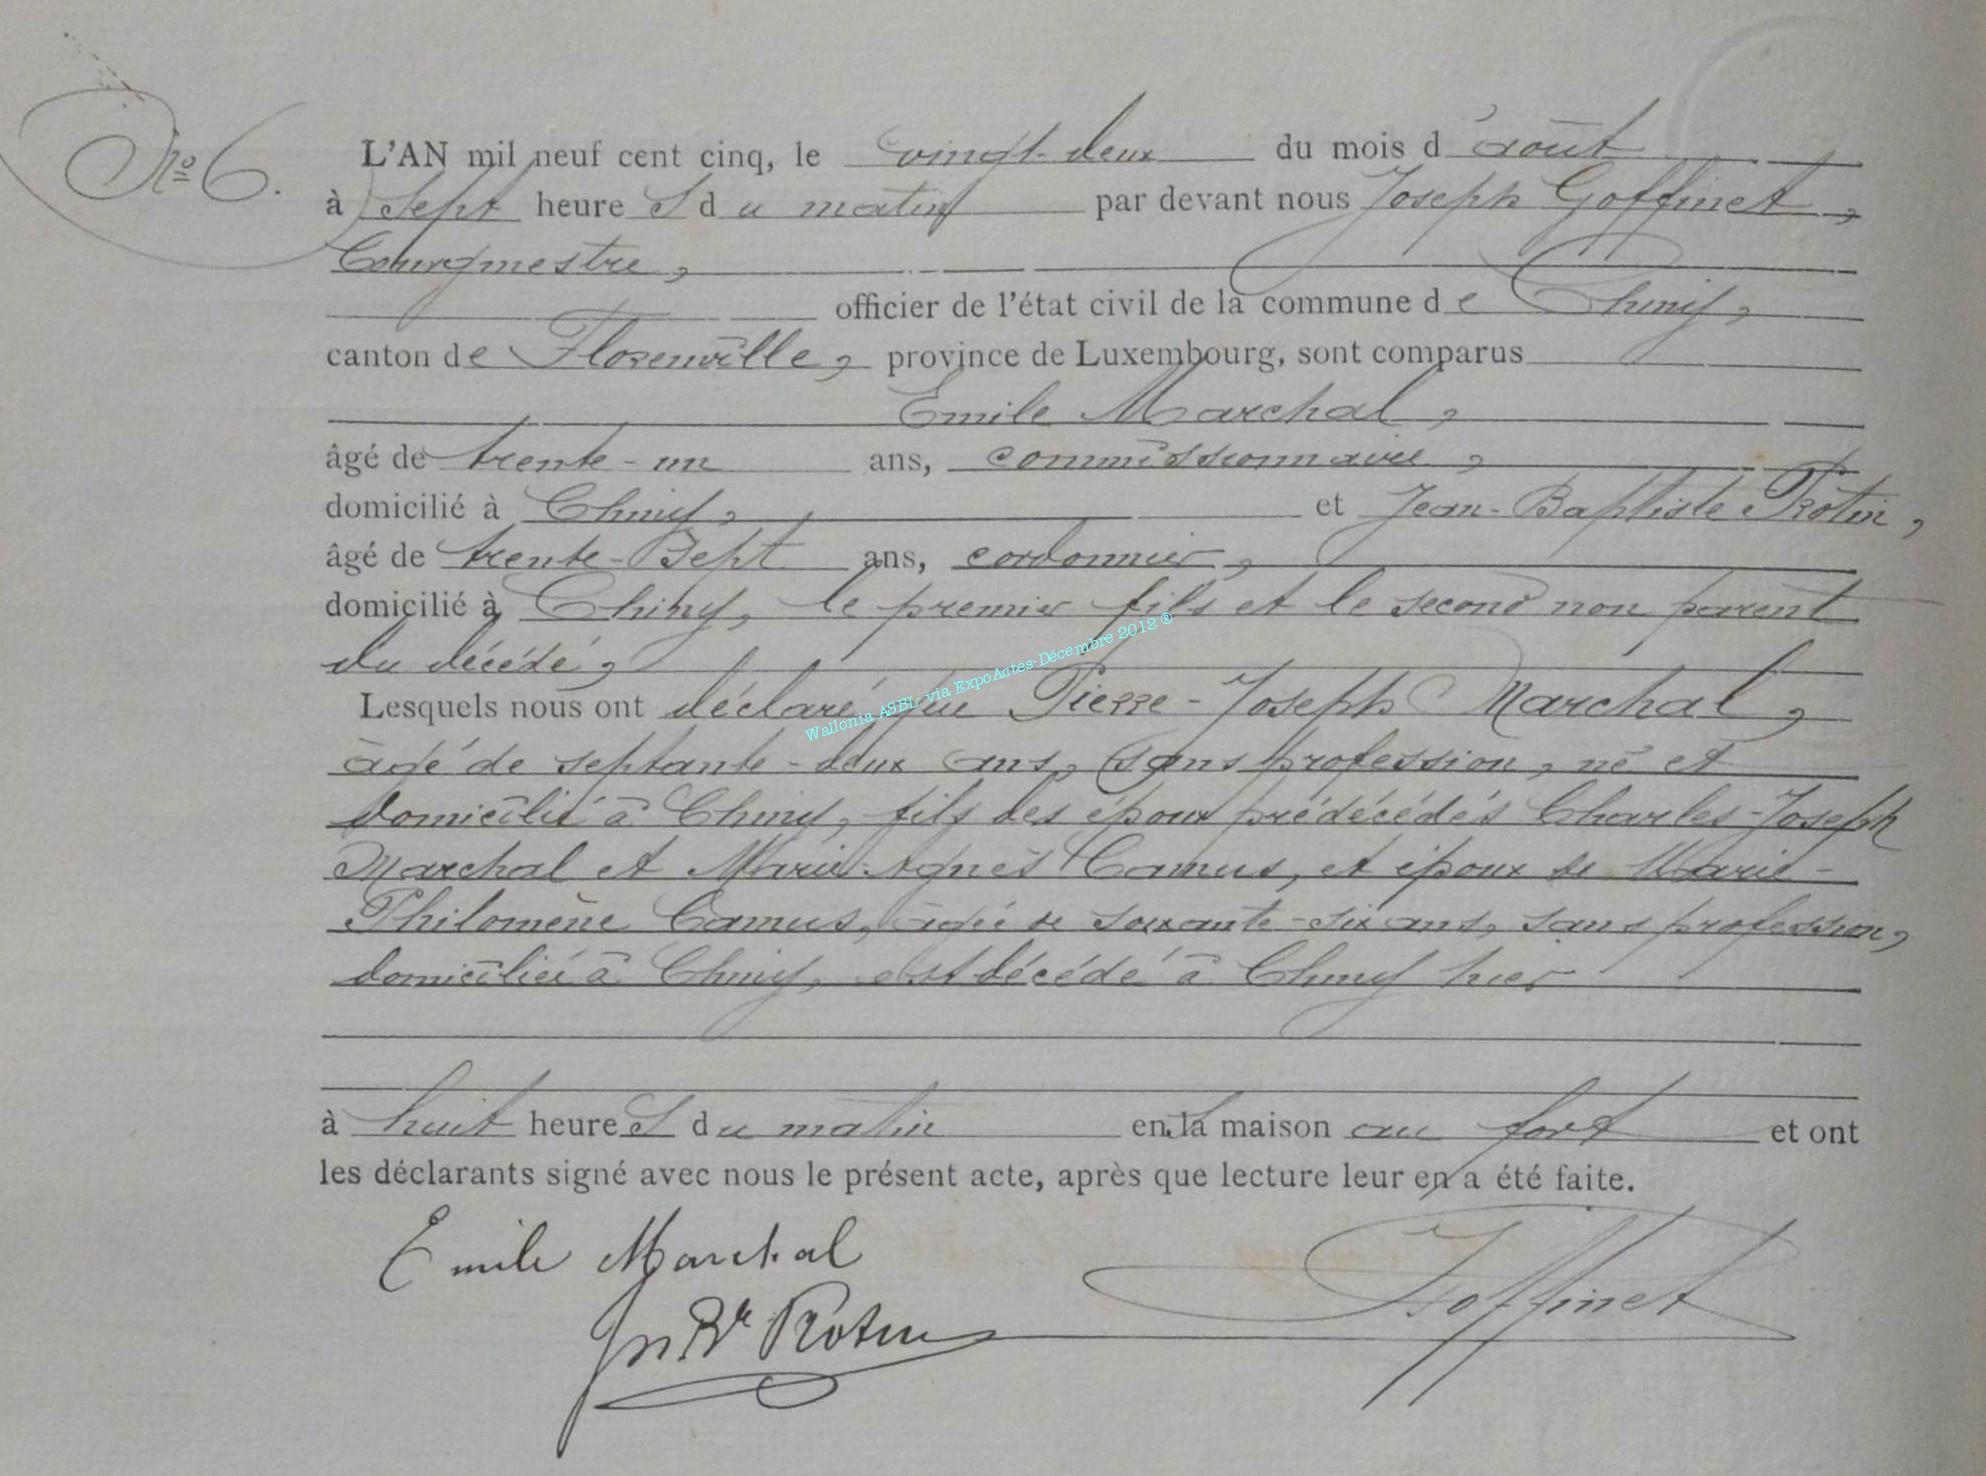 No 6.
L'AN mil neuf cent cinq, le vingt-deux du mois d'août
à sept heures du matin par devant nous Joseph Goffinet,
Bourgmestre,
officier de l'état civil de la commune de Chiny,
canton de Florenville, province de Luxembourg, sont comparus
Emile Marchal,
âgé de trente-un ans, commissionnaire,
domicilié à Chiny, et Jean-Baptiste Rotin,
âgé de trente-sept ans, cordonnier,
domicilié à Chiny, le premier fils et le second non parent
du décédé,
Lesquels nous ont déclaré que Pierre-Joseph Marchal,
âgé de septante-deux ans, sans profession, né et
domicilié à Chiny, fils des époux prédécédés Charles-Joseph
Marchal et Marie-Agnès Camus, et époux de Marie-
Philomène Camus, âgée de soixante-six ans, sans profession,
domiciliée à Chiny, est décédé à Chiny hier
à huit heures du matin en sa maison au fort et ont
les déclarants signé avec nous le présent acte, après que lecture leur en a été faite.
Emile Marchal
Jn Bte Rotin
J Goffinet
Wallonia ASBL- via ExpoActes-Décembre 2012 ®